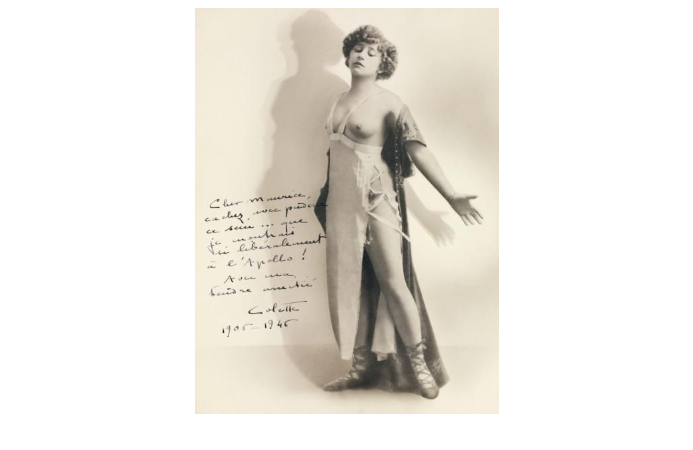 Cher Maurice,
cachez, avec pudeur
ce sein ... que
je montrais
si libéralement
à l'Apollo !
Avec ma
tendre amitié
Colette
1906-1946